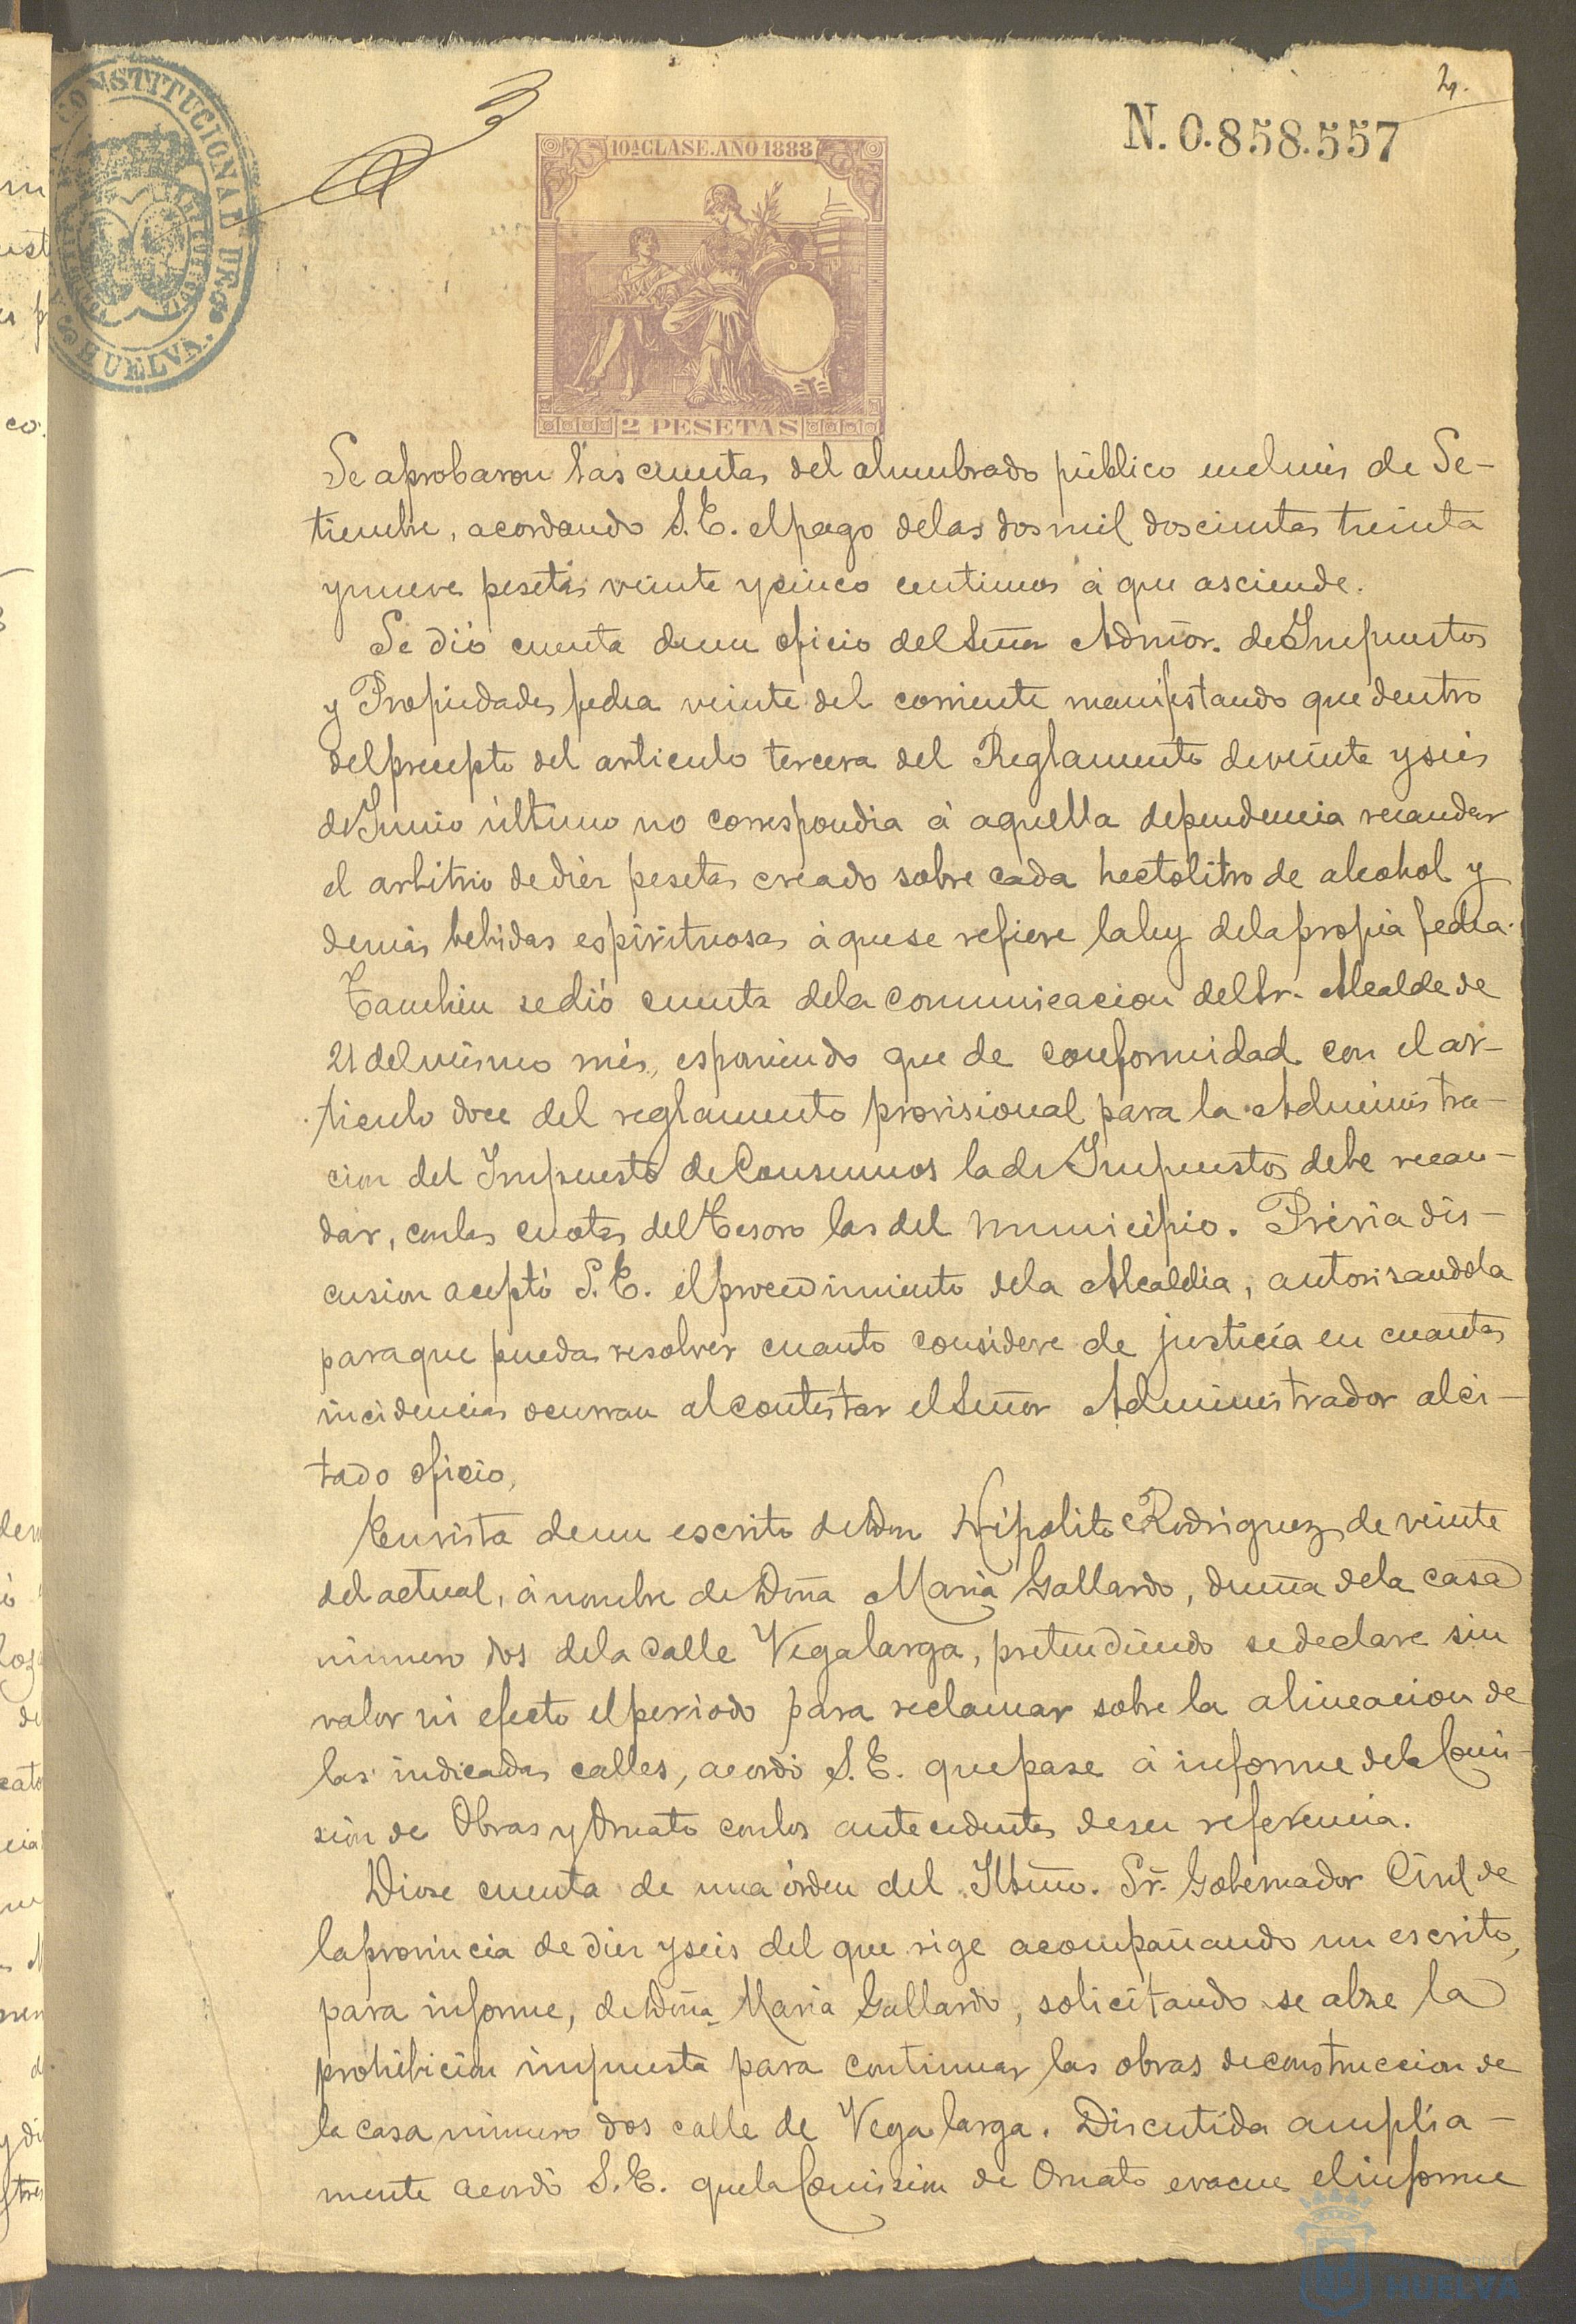 2.
N. 0.858.557
CONSTITUCIONAL
HUELVA.
10ª CLASE. AÑO 1888
2 PESETAS
Se aprobaron las cuentas del alumbrado público en el mes de Se-
tiembre, acordando S. E. el pago de las dos mil doscientas treinta
y nueve pesetas veinte y cinco centimos á que asciende.
Se dió cuenta de un oficio del Señor Admor. de Impuestos
y Propiedades fecha veinte del corriente manifestando que dentro
del precepto del articulo tercero del Reglamento de veinte y seis
de Junio último no correspondia á aquella dependencia recaudar
el arbitrio de diez pesetas creado sobre cada hectolitro de alcohol y
demás bebidas espirituosas á que se refiere la ley de la propia fecha.
Tambien se dió cuenta de la comunicacion del Sr. Alcalde de
21 del mismo mes, esponiendo que de conformidad con el ar-
ticulo doce del reglamento provisional para la Administra-
cion del Impuesto de Consumos la de Impuestos debe recau-
dar, con las cuotas del Tesoro las del municipio. Prévia dis-
cusion aceptó S. E. el procedimiento de la Alcaldia, autorisandola
para que pueda resolver cuanto considere de justicia en cuantas
incidencias ocurran al contestar el Señor Administrador al ci-
tado oficio,
En vista de un escrito de Don Hipolito Rodriguez de veinte
del actual, á nombre de Doña Maria Gallardo, dueña de la casa
número dos de la calle Vegalarga, pretendiendo se declare sin
valor ni efecto el periodo para reclamar sobre la alineacion de
las indicadas calles, acordó S. E. que pase á informe de la Comi-
sion de Obras y Ornato con los antecedentes de su referencia.
Diose cuenta de una órden del Iltmo. Sr. Gobernador Civil de
la provincia de diez y seis del que rige acompañando un escrito,
para informe, de Doña Maria Gallardo, solicitando se alze la
prohibicion impuesta para continuar las obras de construccion de
la casa número dos calle de Vega larga. Discutida amplia-
mente acordó S. E. que la Comision de Ornato evacue el informe
HUELVA